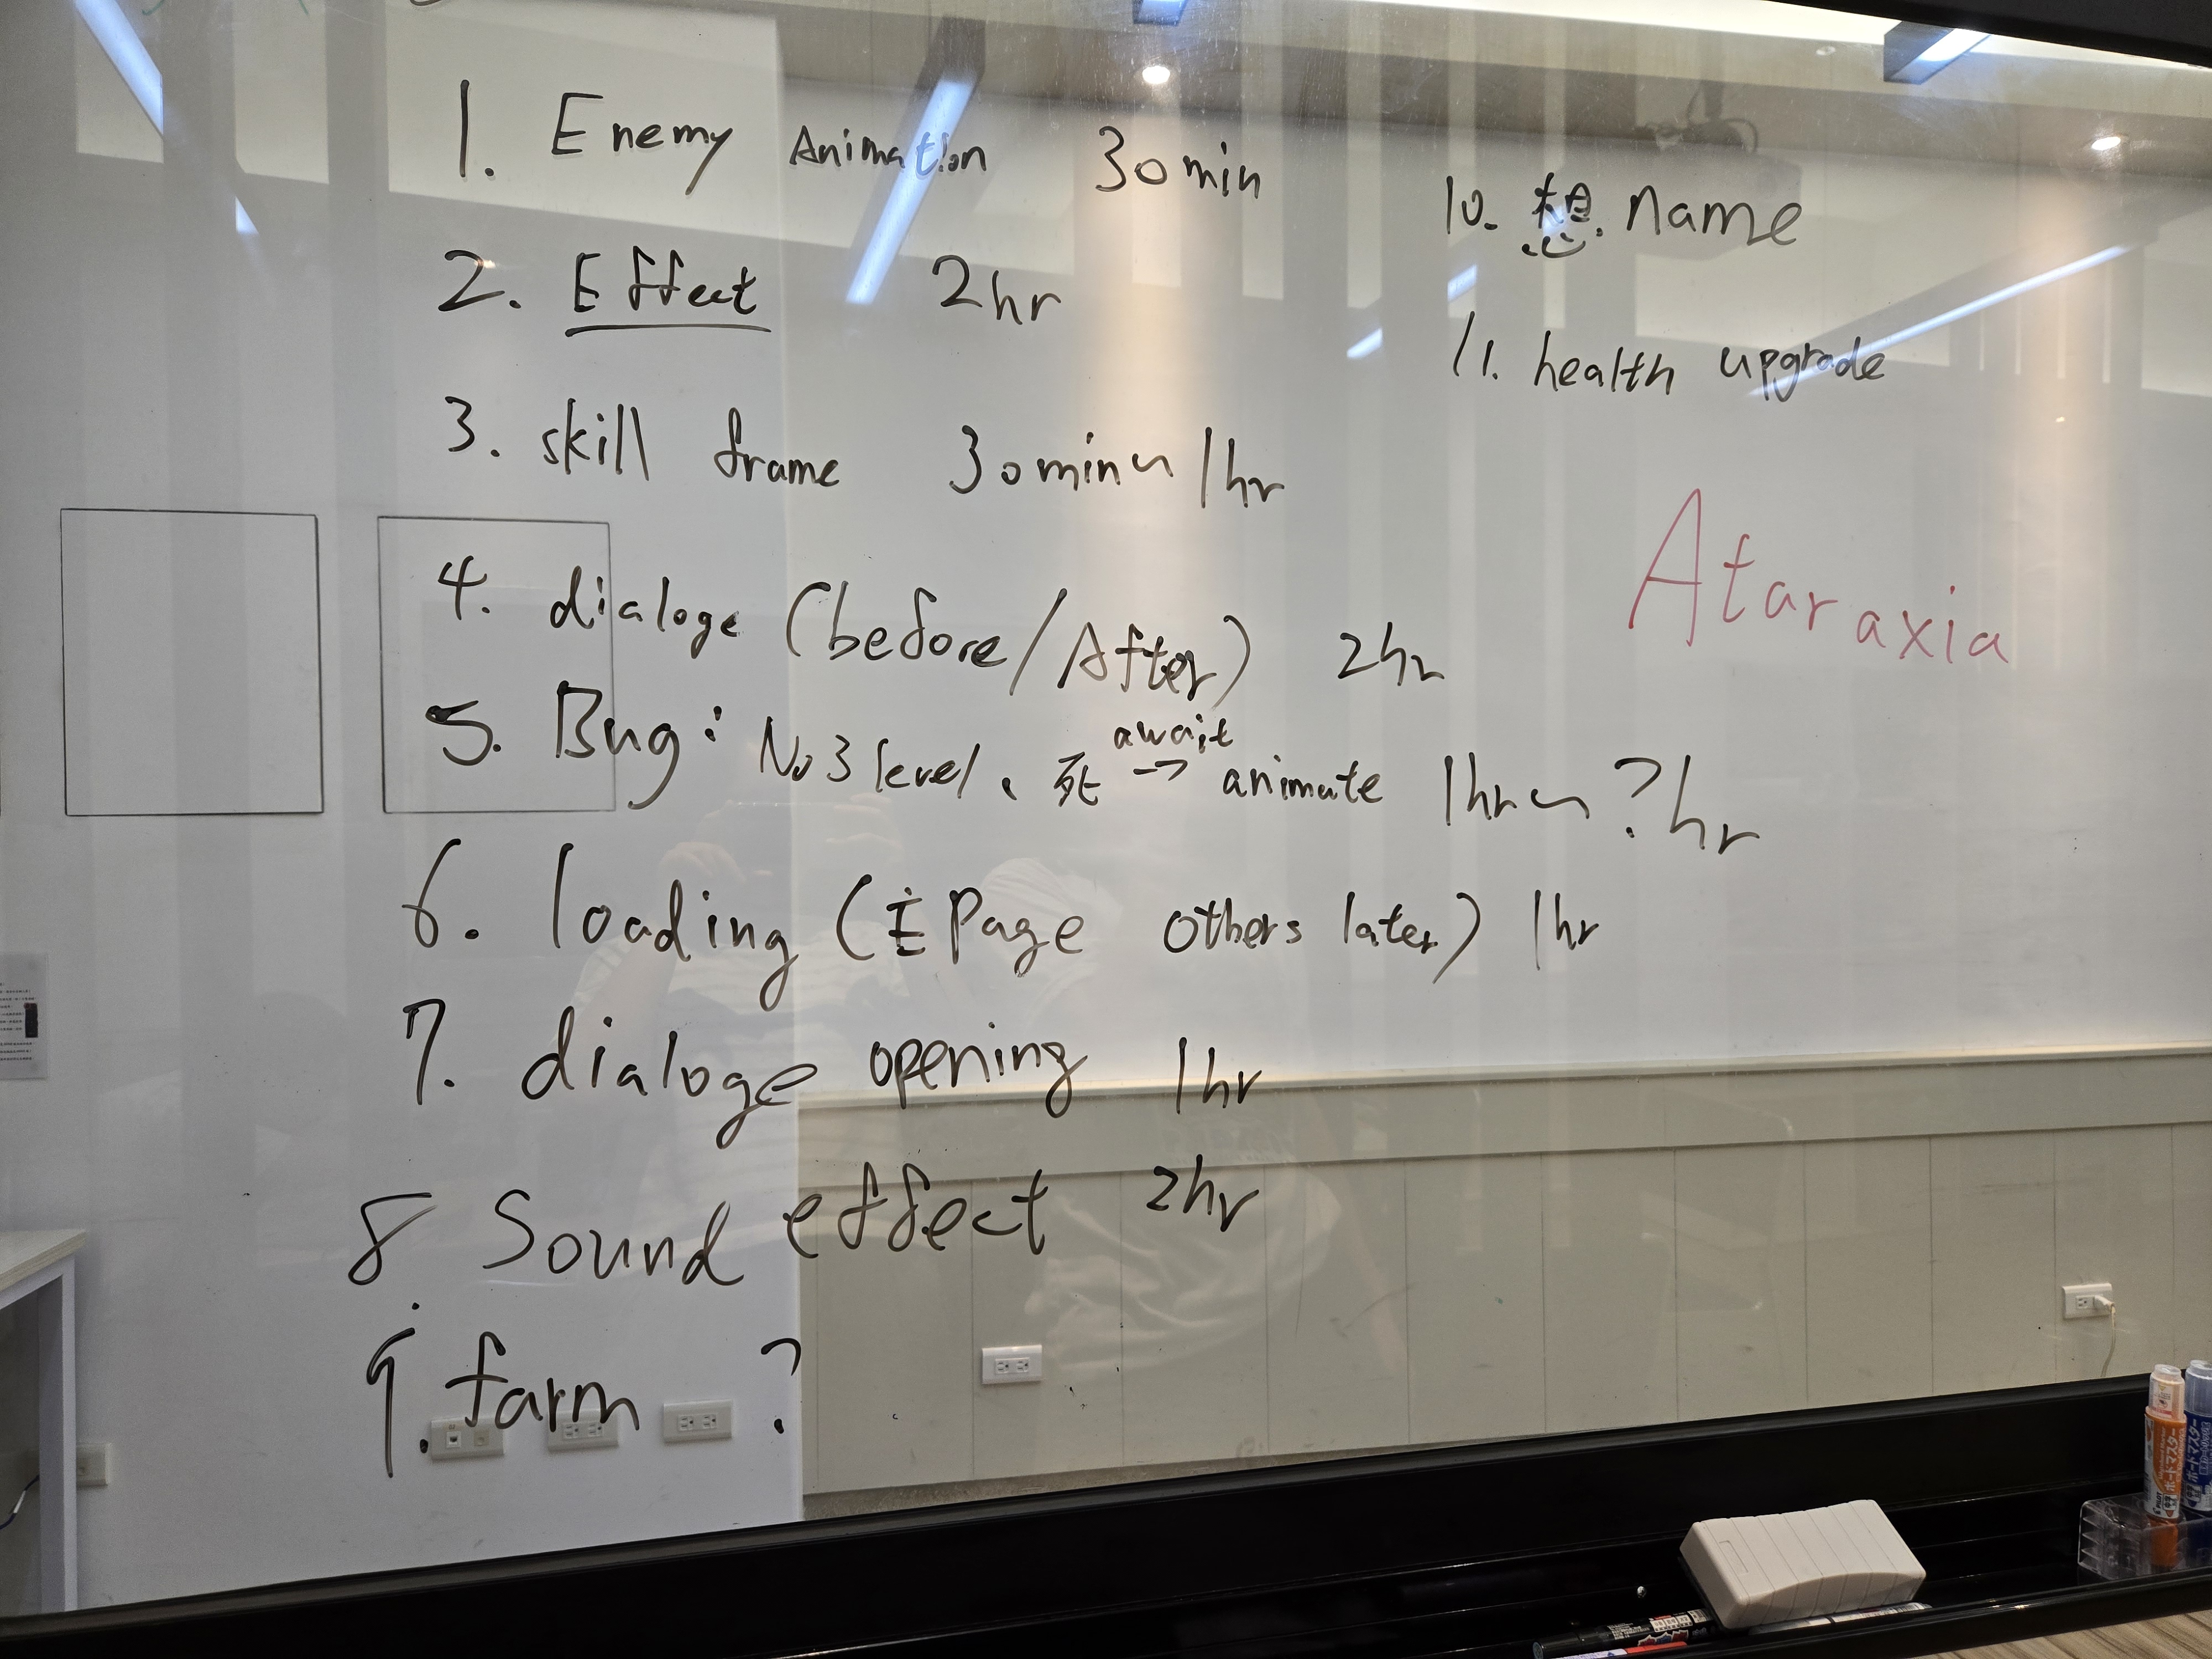 1. Enemy Animation 30min
2. Effect 2hr
3. skill frame 30min~1hr
4. dialoge (before/After) 2hr
5. Bug: No3 level、死 await → animate 1hr~?hr
6. loading (主Page others later) 1hr
7. dialoge opening 1hr
8. Sound effect 2hr
9. farm ?
10. 想name
11. health upgrade
Ataraxia
ボードマスター
ボードマスター